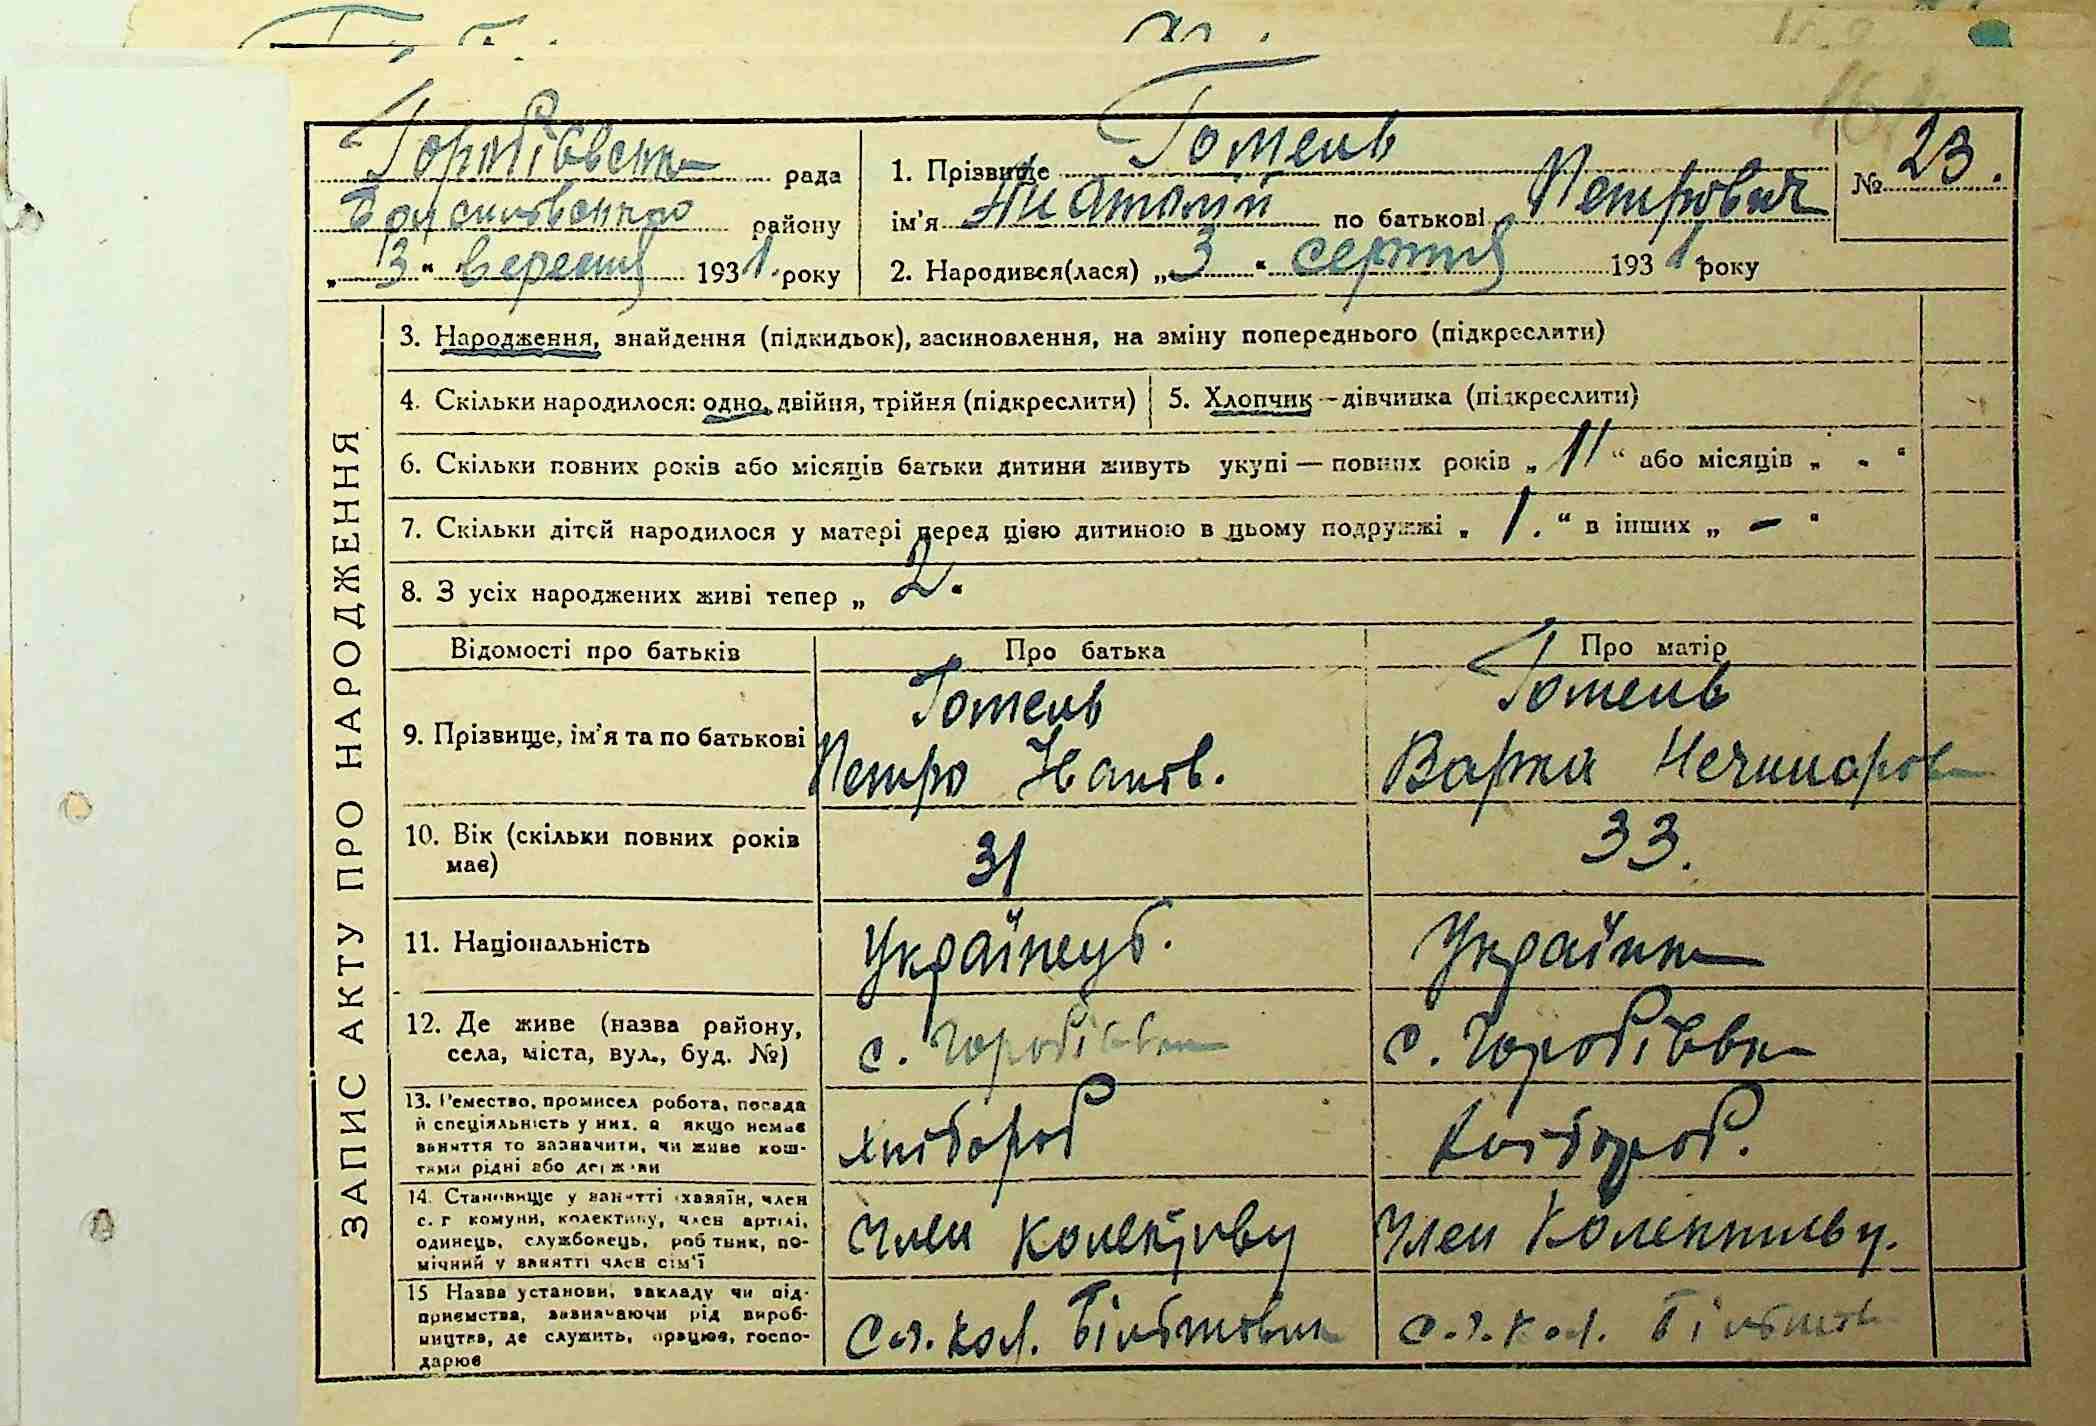 Горобіївська рада
району
„3“ вересня 1931. року
1. Прізвище Гомель
ім'я Анатолій по батькові Петрович
№ 23.
2. Народився(лася) „3“ серпня 1931 року
ЗАПИС АКТУ ПРО НАРОДЖЕННЯ
3. Народження, знайдення (підкидьок), засиновлення, на зміну попереднього (підкреслити)
4. Скільки народилося: одно, двійня, трійня (підкреслити)
5. Хлопчик — дівчинка (підкреслити)
6. Скільки повних років або місяців батьки дитини живуть укупі — повних років „11“ або місяців „ - “
7. Скільки дітей народилося у матері перед цією дитиною в цьому подружжі „1.“ в інших „ – “
8. З усіх народжених живі тепер „2.“
Відомості про батьків
Про батька
Про матір
9. Прізвище, ім'я та по батькові
Гомель
Петро
Гомель
Варка
10. Вік (скільки повних років має)
31
33.
11. Національність
Українець.
Українка
12. Де живе (назва району, села, міста, вул., буд. №)
с. Горобіївка
с. Горобіївка
13. Ремество, промисел робота, посада й спеціяльність у них, а якщо немає заняття то зазначити, чи живе коштами рідні або держави
хлібороб
хлібороб.
14. Становище у занятті (хазяїн, член с. г комуни, колективу, член артілі, одинець, службовець, робітник, помічний у занятті член сім'ї
Член колективу
Член колективу.
15 Назва установи, закладу чи підприємства, зазначаючи рід виробництва, де служить, працює, господарює
с.г. кол. Більшовик
с.г. кол. Більшов